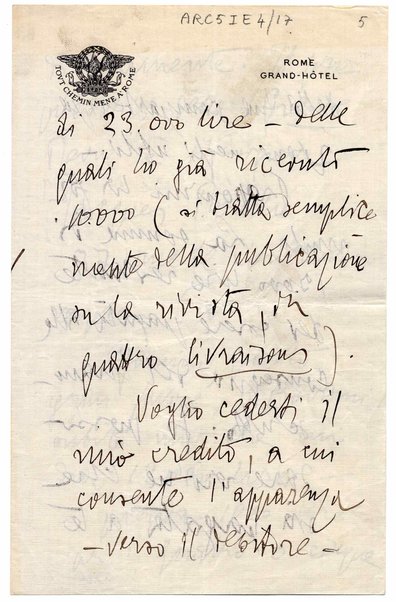 ARC5 I E 4/17
5
TOVT CHEMIN MENE A ROME
ROME
GRAND-HÔTEL
di 23.000 lire – delle
quali ho già ricevuti
10000 (si tratta semplice
mente della pubblicazione
su la rivista, in
quattro livraisons).
Voglio cederti il
mio credito, a cui
consente l'apparenza
– verso il debitore –